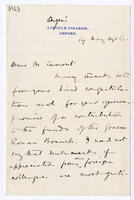 3163
LINCOLN COLLEGE,
OXFORD.
19 May 1926
Dear M. Cumont
Many thanks
for your kind congratula-
tions and for your generous
promise of a contribution
to the funds of the Graeco
Roman Branch. I need not
say that such marks of
appreciation from foreign
colleagues are most grati-